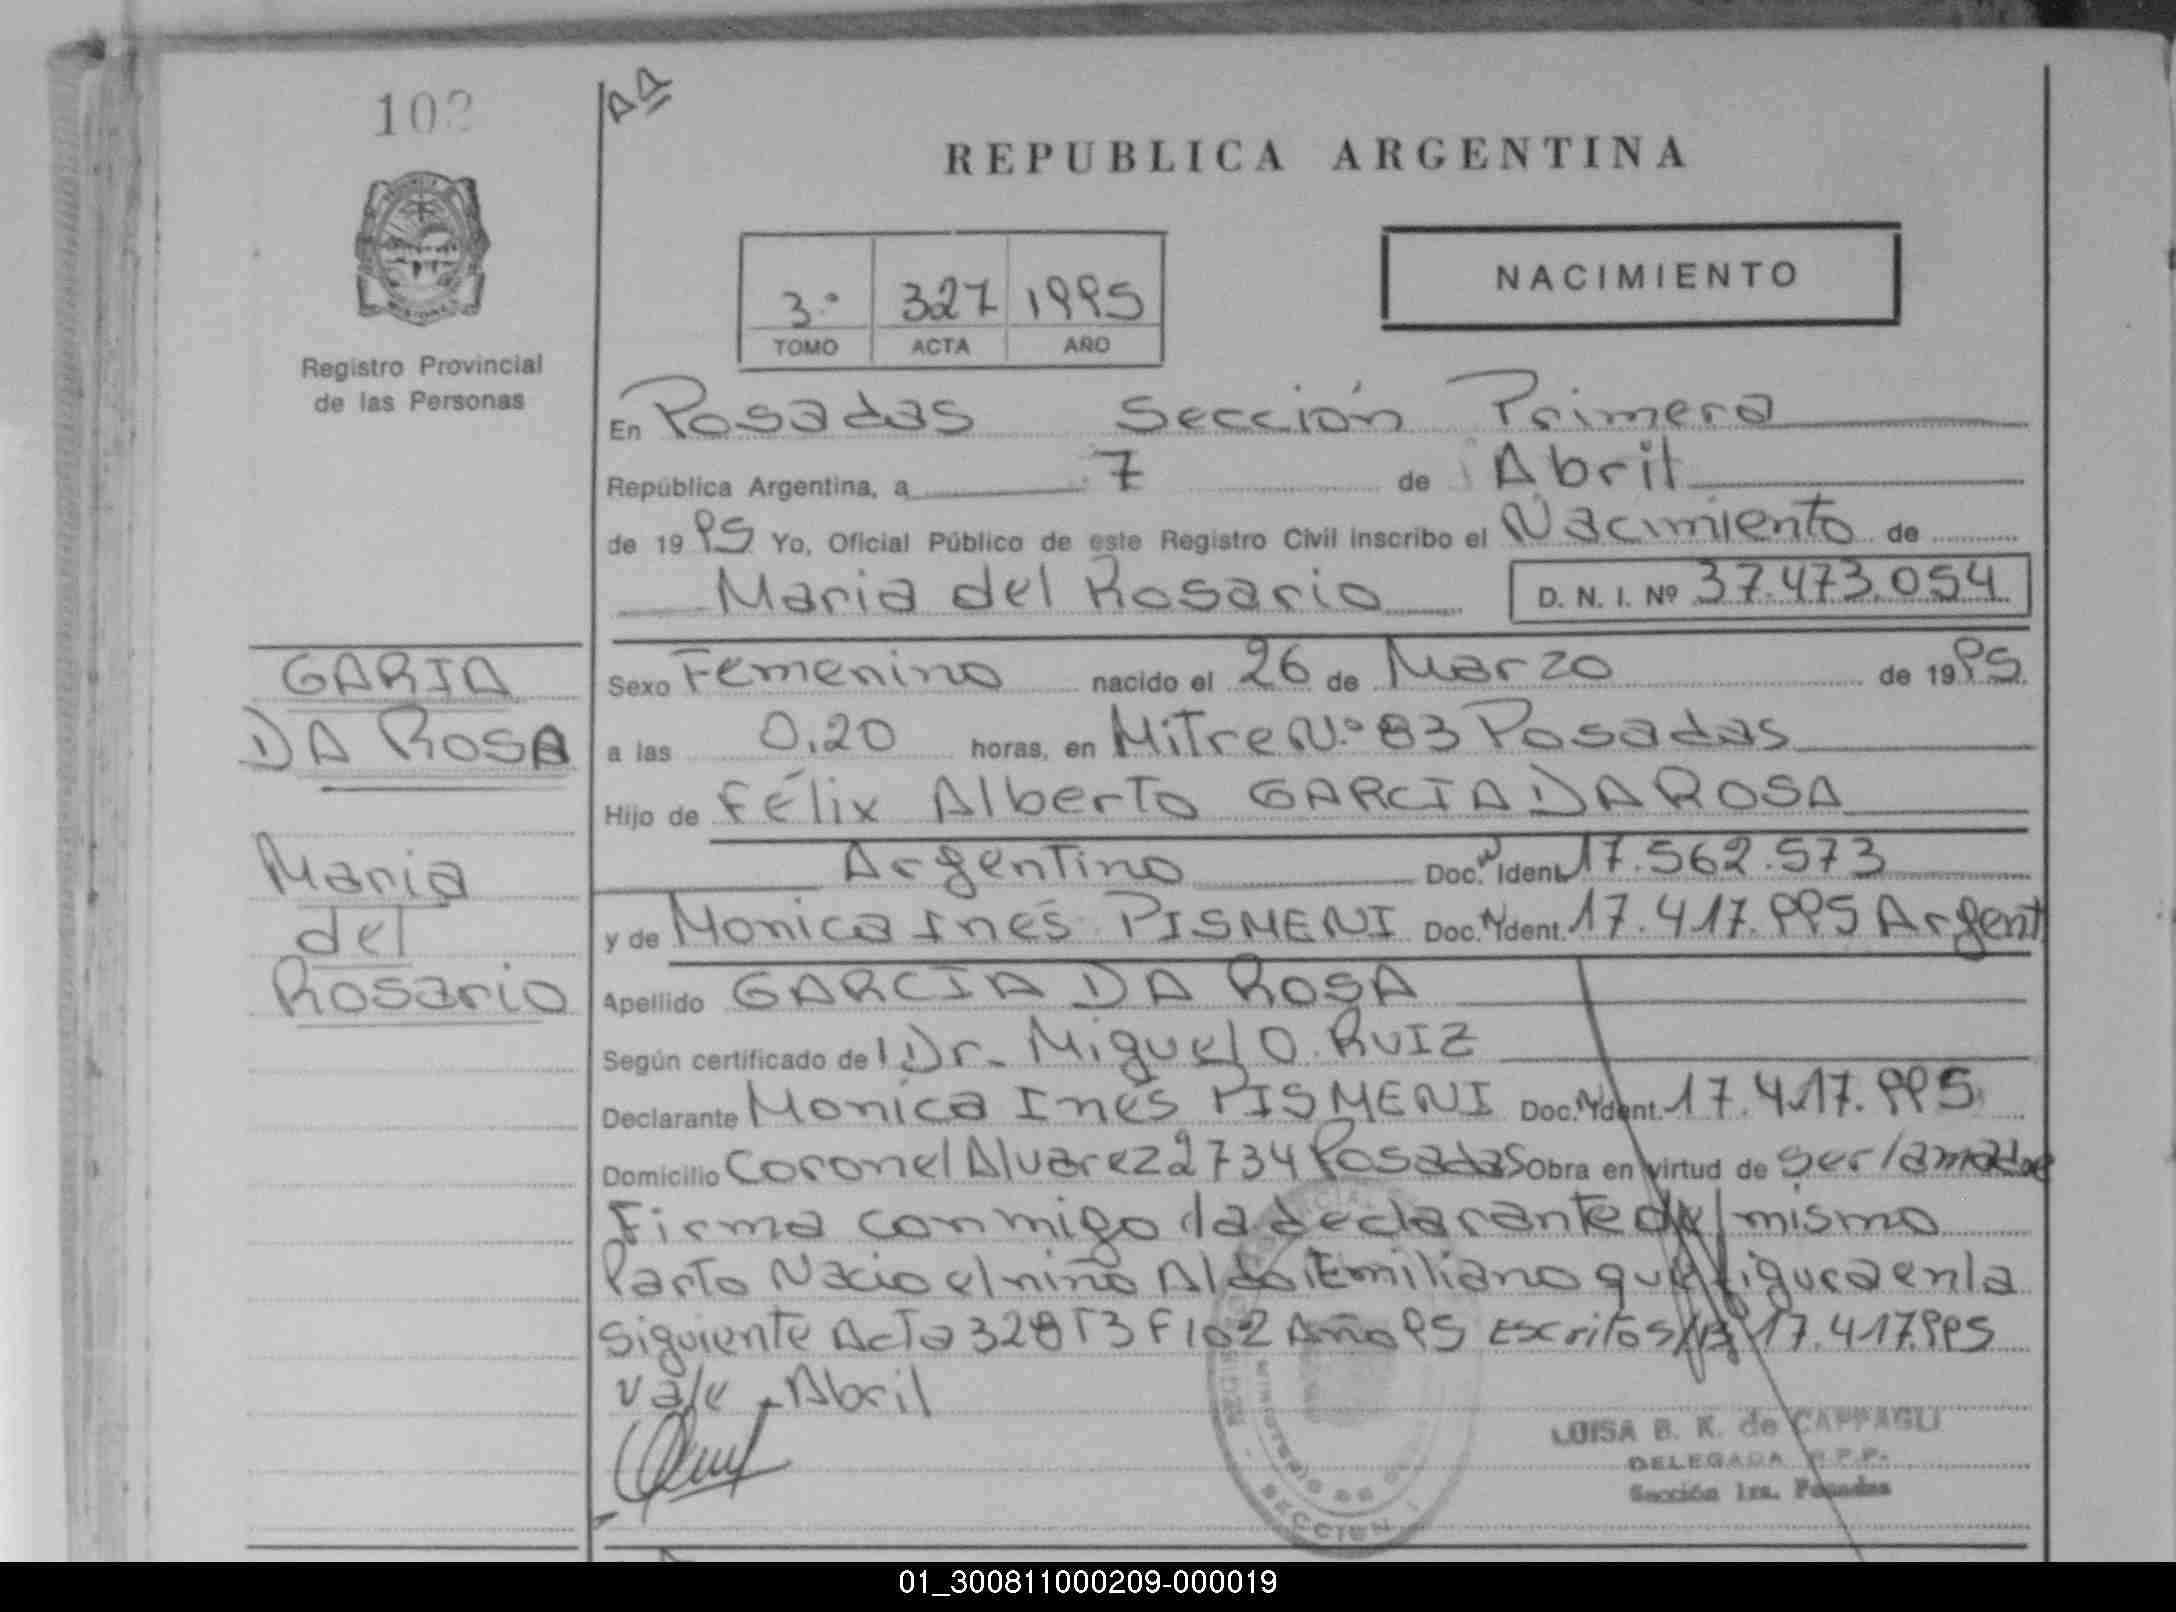 102
AA
REPUBLICA ARGENTINA
NACIMIENTO
3º 327 1995
TOMO ACTA AÑO
Registro Provincial
de las Personas
En Posadas Sección Primera
República Argentina, a 7 de Abril
de 1995 Yo, Oficial Público de este Registro Civil inscribo el Nacimiento de
Maria del Rosario D. N. I. Nº 37.473.054
GARIA
DA ROSA
Maria
del
Rosario
Sexo Femenino nacido el 26 de Marzo de 1995
a las 0,20 horas, en Mitre Nº 83 Posadas
Hijo de Félix Alberto GARCIA DA ROSA
Argentino Doc. Ident. 17.562.573
y de Monica Inés PISMENI Doc. Ident. 17.417.995 Argent
Apellido GARCIA DA ROSA
Según certificado de Dr. Miguel O. RUIZ
Declarante Monica Inés PISMENI Doc. Ident. 17.417.995
Domicilio Coronel Alvarez 2734 Posadas Obra en virtud de ser la madre
Firma conmigo la declarante del mismo
Parto Nacio el niño Aldo Emiliano que figura en la
siguiente Acta 328 T3 F102 Año 95 Escritos 17.417.995
Vale Abril
LUISA B. K. de CAPPAGLI
DELEGADA R.P.P.
Sección 1ra. Posadas
SECCION 1
01_300811000209-000019